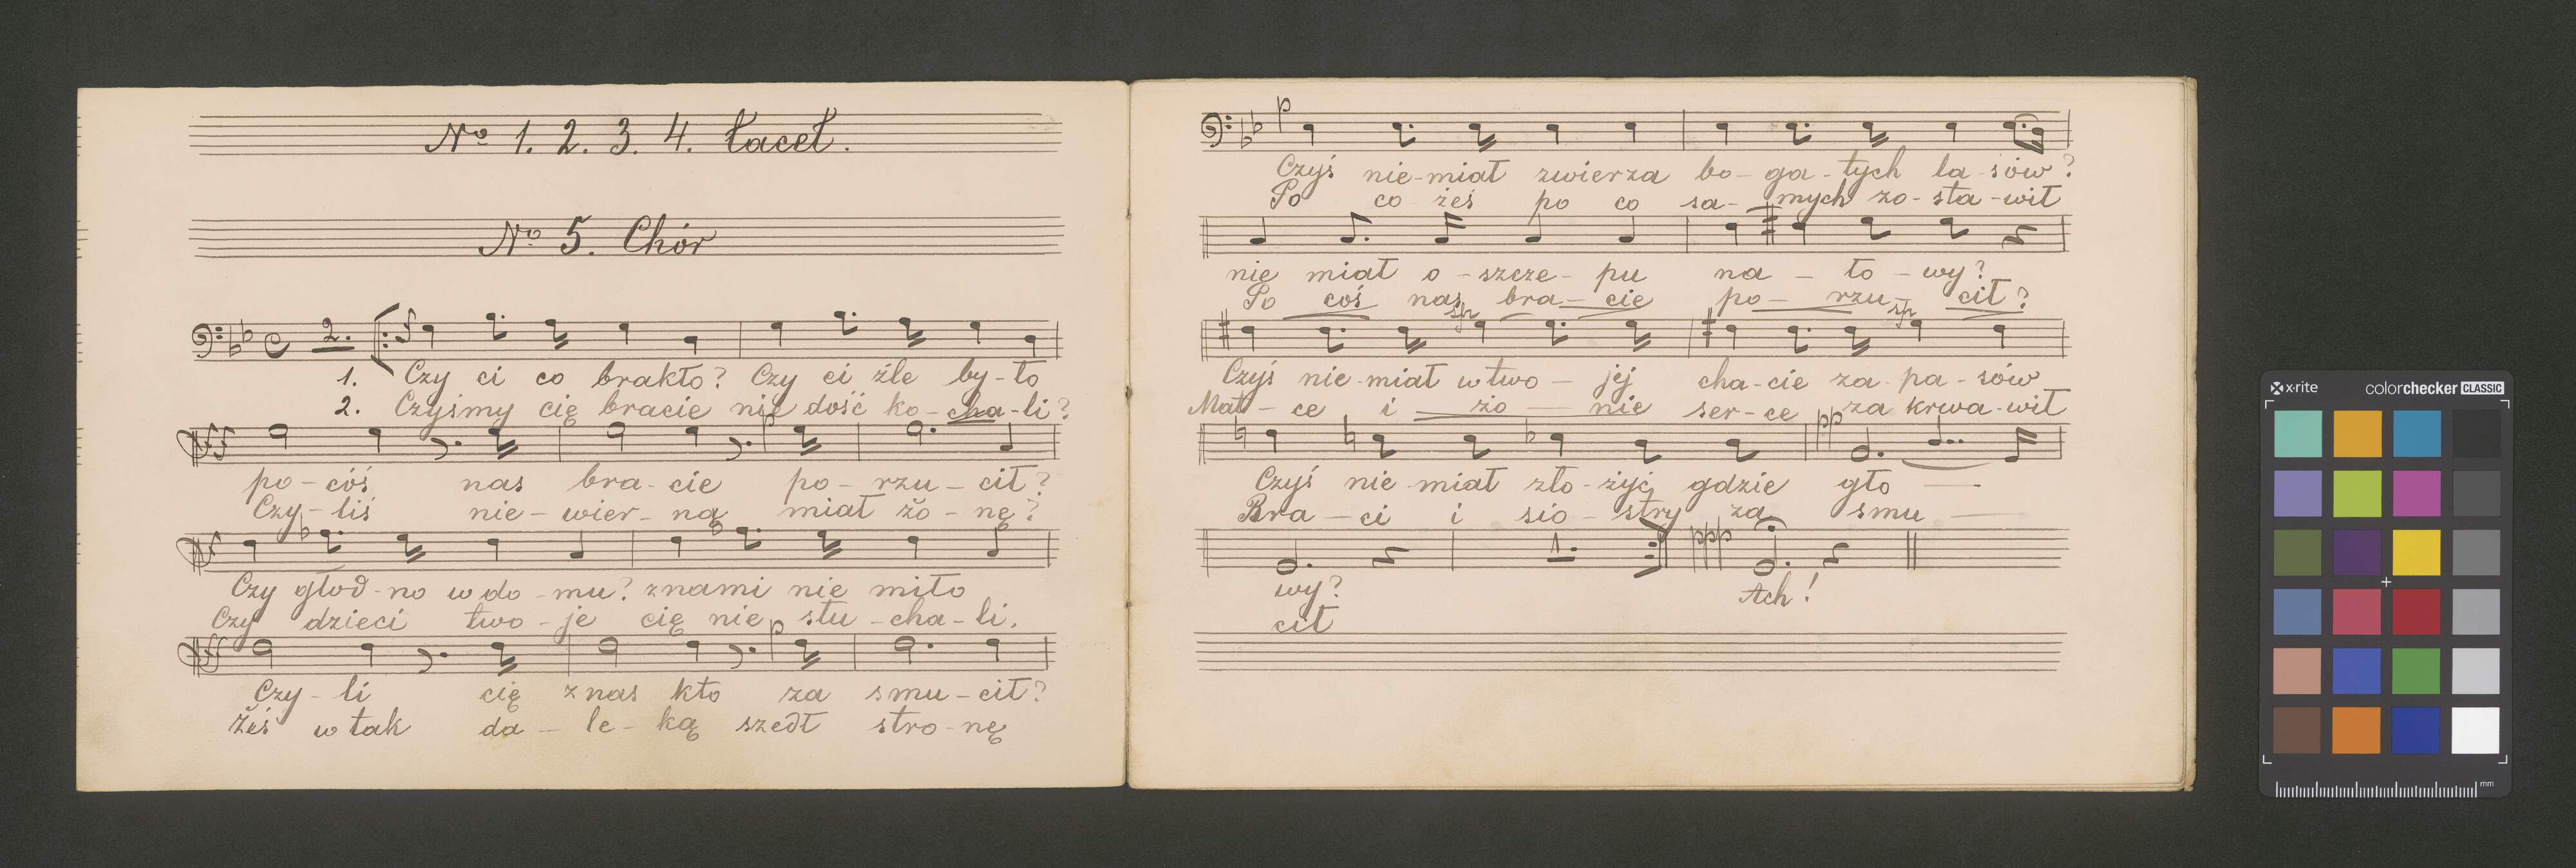 No 1. 2. 3. 4. tacet.
No 5. Chór
2.
1. Czy ci co brakło? Czy ci źle by-ło
2. Czyśmy cię bracie nie dość ko-cha-li?
p
po-cóś nas bra-cie po-rzu-cił?
Czy-liś nie-wier-ną miał żo-nę?
Czy głod-no w do-mu? z nami nie miło
Czy dzieci two-je cię nie słu-cha-li.
p
Czy-li cię z nas kto za smu-cił?
Żeś w tak da-le-ką szedł stro-nę
p
Czyś nie-miał zwierza bo-ga-tych la-sów?
Po co-żeś po co sa-mych zo-sta-wił
nie miał o-szcze-pu na-ło-wy?
Po coś nas bra-cie po-rzu-cił?
sfp sfp
Czyś nie-miał w two-jej cha-cie za-pa-sów
Mat-ce i żo-nie ser-ce za krwa-wił
pp
Czyś nie-miał zło-żyć gdzie gło
Bra-ci i sio-stry za smu
1. ppp
wy? Ach!
cił
x-rite colorchecker CLASSIC
mm